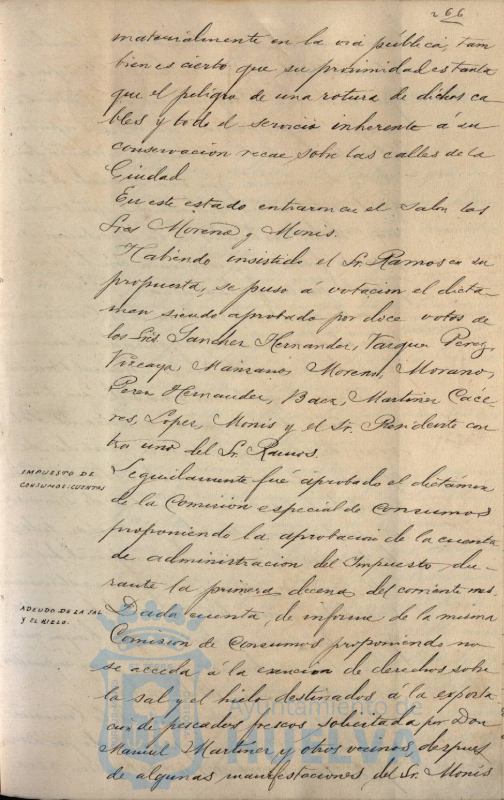 266
materialmente en la via pública, tam
bien es cierto que su proximidad es tanta
que el peligro de una rotura de dichos ca
bles y todo el servicio inherente á su
conservacion recae sobre las calles de la
Ciudad
En este estado entraron en el Salon los
Sres Moreno y Monis.
Habiendo insistido el Sr. Ramos en su
propuesta, se puso á votacion el dicta-
men siendo aprobado por doce votos de
los Srs Sanchez Hernandez, Vazquez Perez,
Vizcaya, Manzano, Moreno, Morano,
Perez Hernandez, Baez, Martinez Cáce
res, Lopez, Monis y el Sr. Presidente con
tra uno del Sr. Ramos.
IMPUESTO DE
CONSUMOS: CUENTAS
Seguidamente fué aprobado el dictamen
de la Comision especial de Consumos
proponiendo la aprobacion de la cuenta
de administracion del Impuesto du-
rante la primera decena del corriente mes.
ADEUDO DE LA SAL
Y EL HIELO.
Dada cuenta de informe de la misma
Comision de Consumos proponiendo no
se acceda á la exencion de derechos sobre
la sal y el hielo destinados á la exporta
cion de pescados frescos solicitada por Don
Manuel Martinez y otros vecinos, despues
de algunas manifestaciones del Sr. Monis
Ayuntamiento de
HUELVA